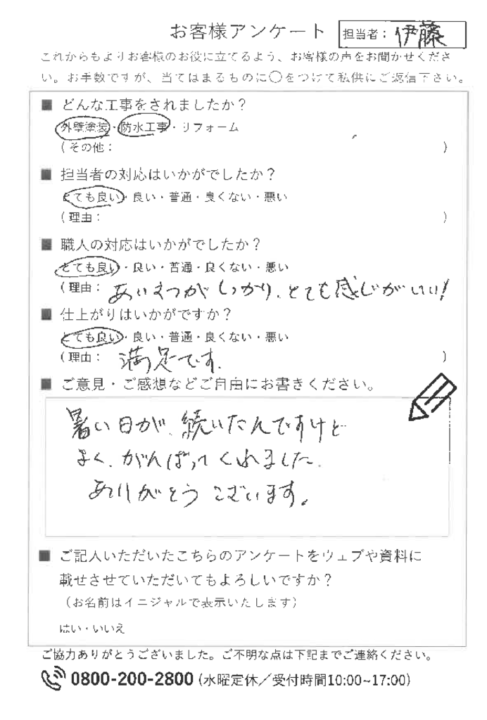 お客様アンケート 担当者: 伊藤
これからもよりお客様のお役に立てるよう、お客様の声をお聞かせくださ
い。お手数ですが、当てはまるものに○をつけて私供にご返信下さい。
■ どんな工事をされましたか？
外壁塗装・防水工事・リフォーム
(その他: )
■ 担当者の対応はいかがでしたか？
とても良い・良い・普通・良くない・悪い
(理由: )
■ 職人の対応はいかがでしたか？
とても良い・良い・普通・良くない・悪い
(理由: あいさつがしっかり、とても感じがいい!
■ 仕上がりはいかがですか？
とても良い・良い・普通・良くない・悪い
(理由: 満足です. )
■ ご意見・ご感想などご自由にお書きください。
暑い日が、続いたんですけど
よく、がんばってくれました.
ありがとうございます。
■ ご記入いただいたこちらのアンケートをウェブや資料に
載せさせていただいてもよろしいですか？
(お名前はイニシャルで表示いたします)
はい・いいえ
ご協力ありがとうございました。ご不明な点は下記までご連絡ください。
0800-200-2800 (水曜定休／受付時間10:00~17:00)